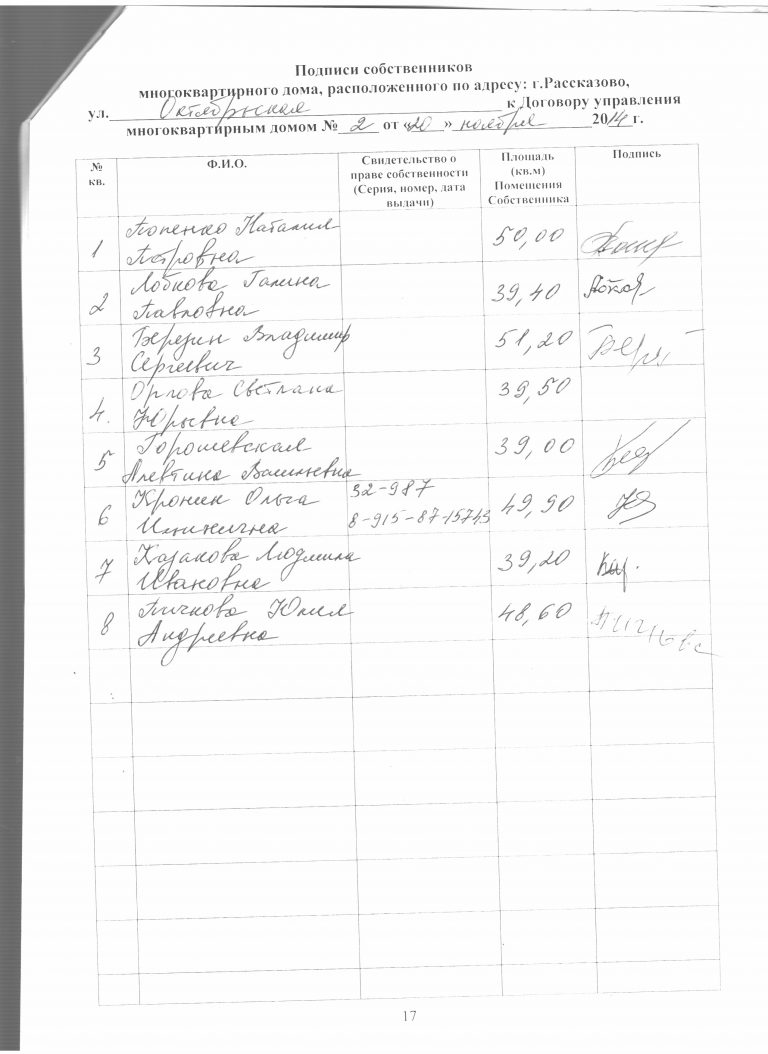 Подписи собственников
многоквартирного дома, расположенного по адресу: г.Рассказово,
ул. Октябрьская к Договору управления
многоквартирным домом № 2 от «20» ноября 2014 г.
№ кв. Ф.И.О. Свидетельство о праве собственности (Серия, номер, дата выдачи) Площадь (кв.м) Помещения Собственника Подпись
1 Попенко Наталия
Петровна 50,00
2 Лобкова Галина
Павловна 39,40
3 Березин Владимир
Сергеевич 51,20
4. Орлова Светлана
Юрьевна 39,50
5 Горошевская
Алевтина Васильевна 39,00
6 Кронин Ольга 32-987
8-915-87-15743 49,90
7 Казакова Людмила
Ивановна 39,20
8 Пичкова Юлия
Андреевна 48,60 Пичкова
17